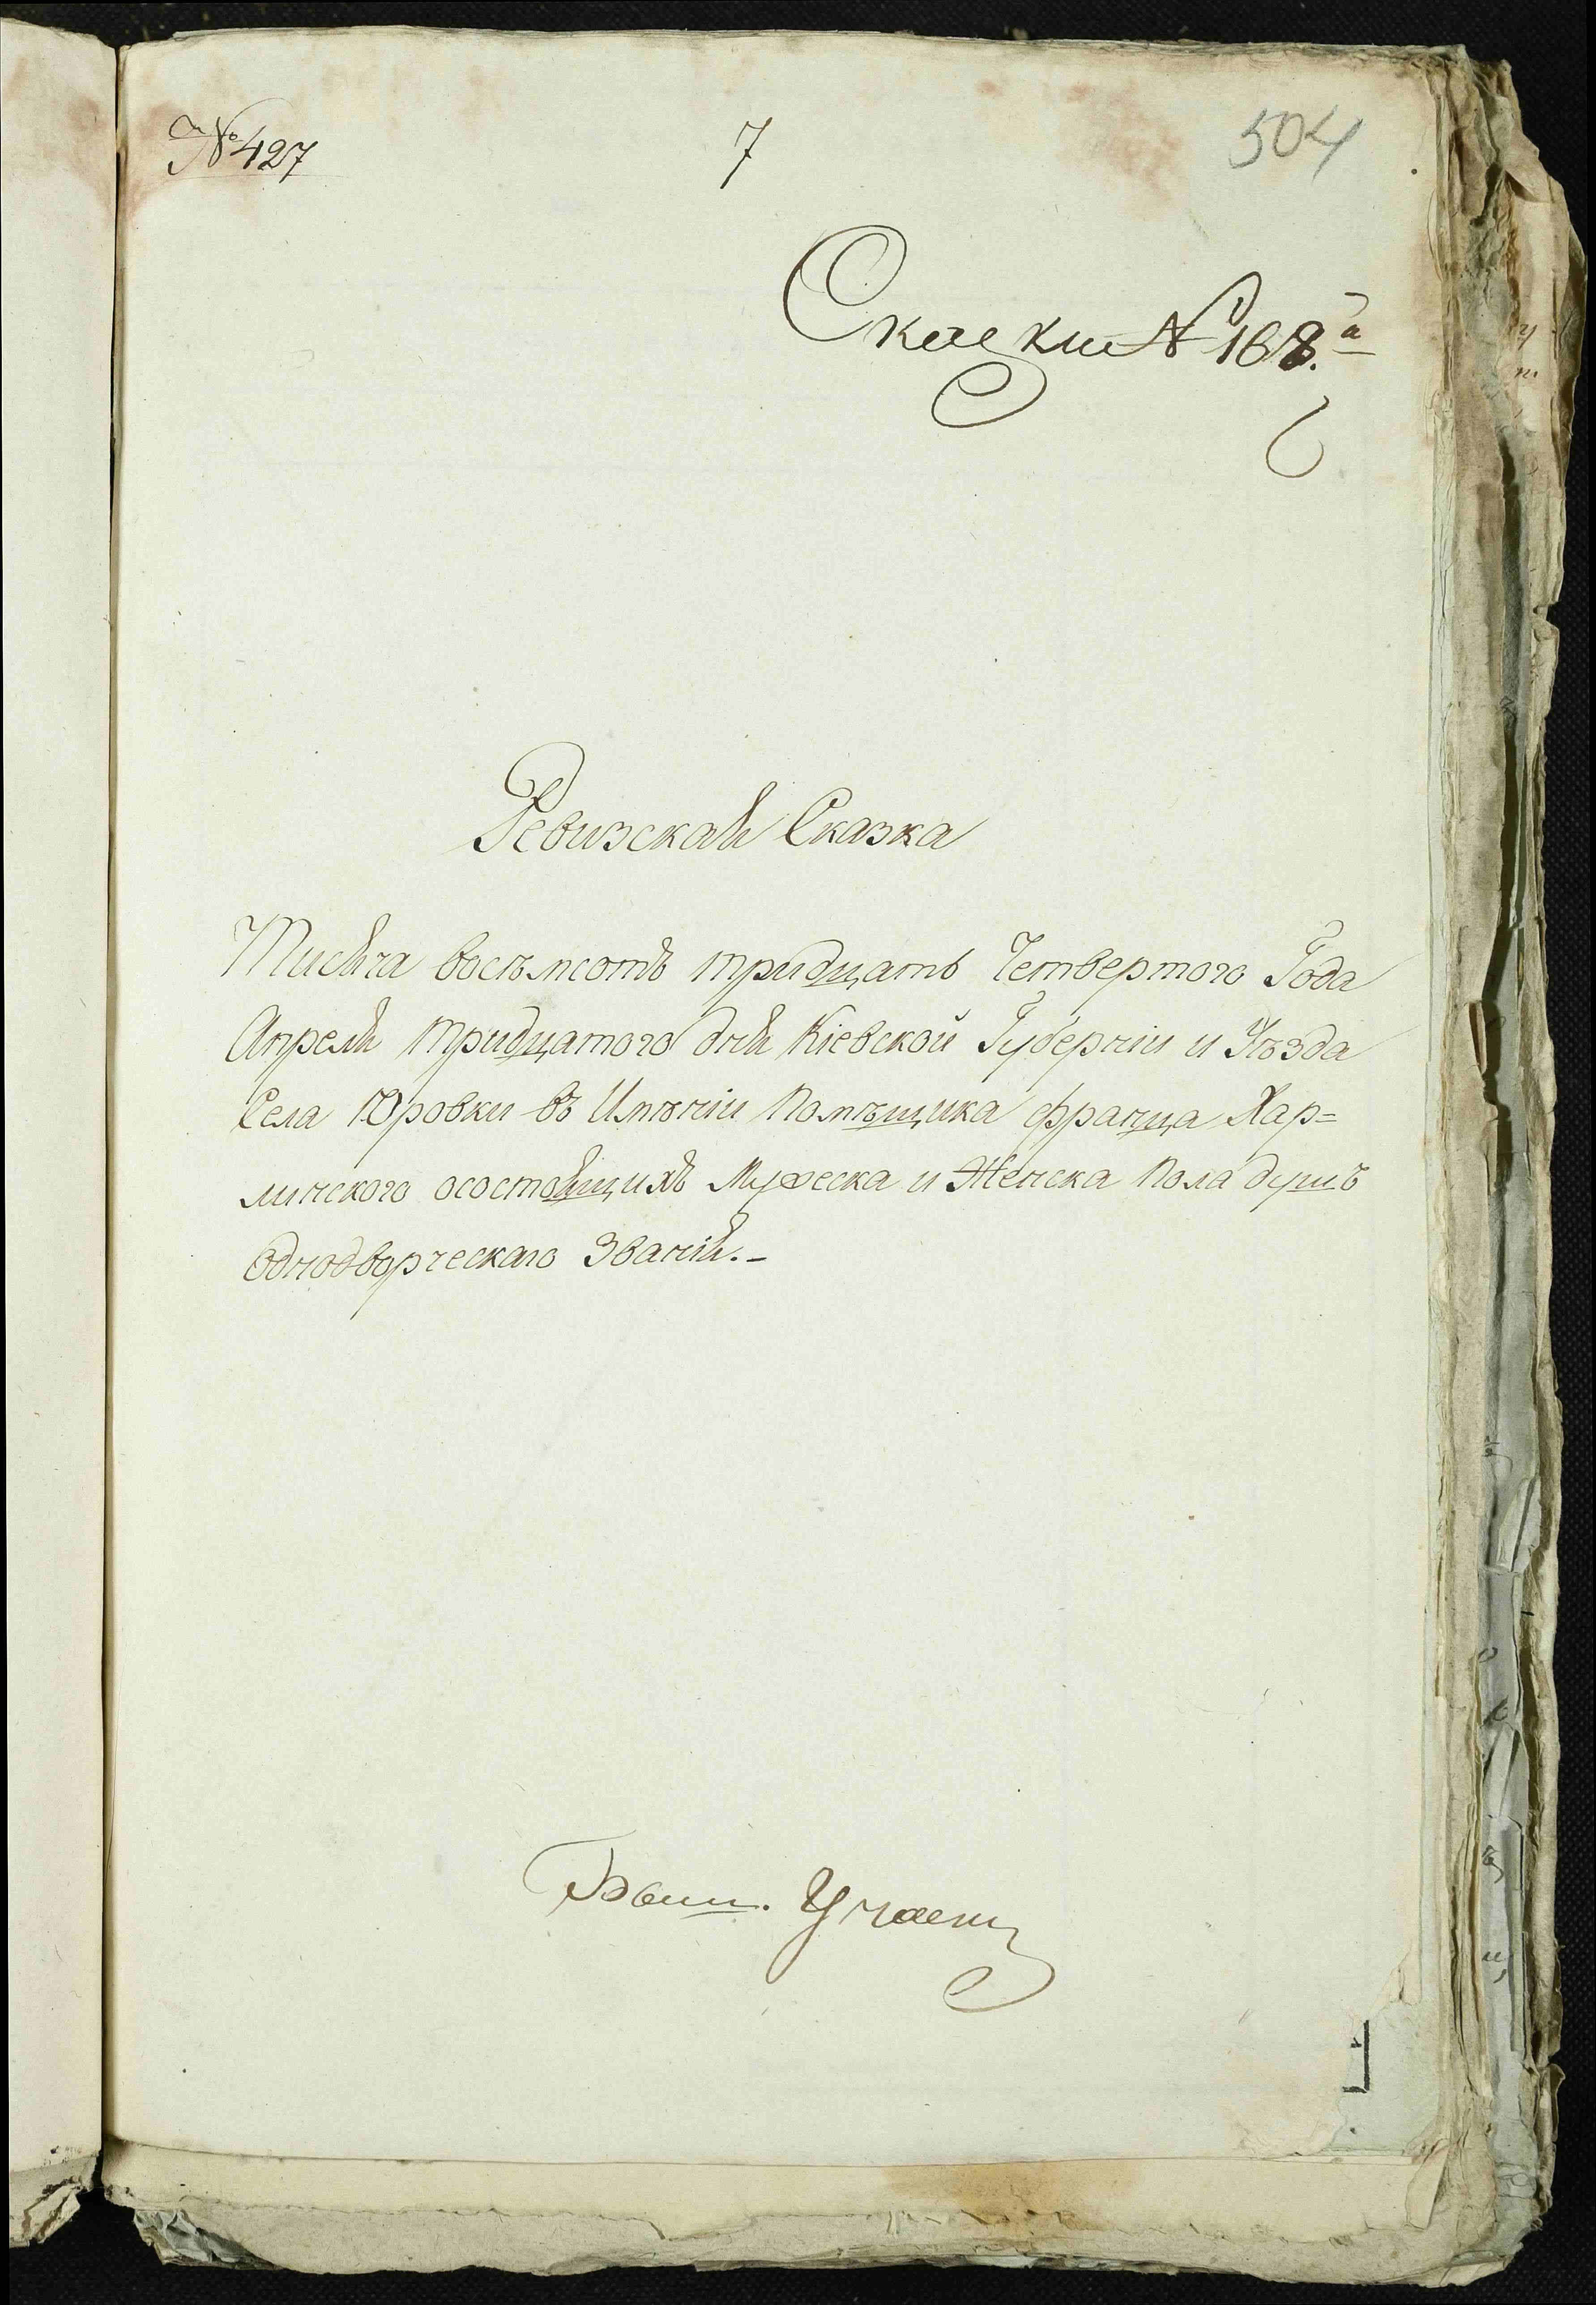 № 427
7
504
Сказки № 168.а
Ревизская Сказка
Тисяча восѣмсотъ тридцать Четвертого Года
Апреля тридцатого дня Кіевской Губерніи и Уѣзда
Села Юровки въ Имѣніи Помѣщика франца Хар=
линского осостоящихъ Мужеска и Женска Пола душъ
Однодворческаго Званія.-